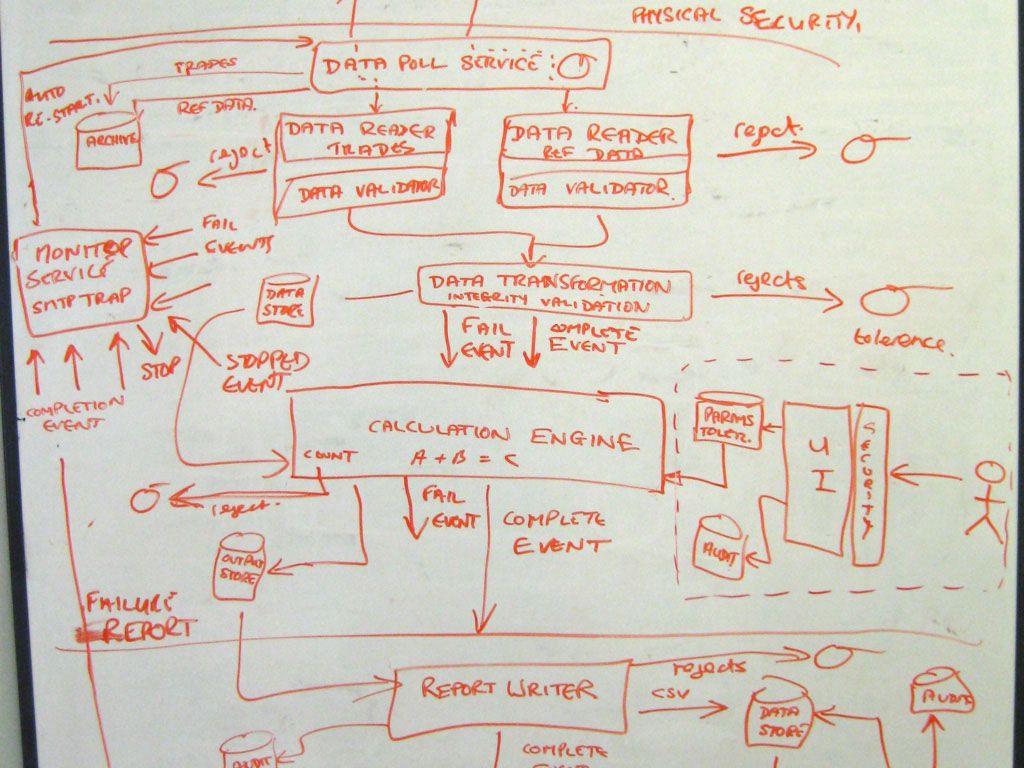 PHYSICAL SECURITY.
DATA POLL SERVICE
TRADES
AUTO
RE-START.
REF DATA.
ARCHIVE
DATA READER
TRADES
DATA VALIDATOR
DATA READER
REF DATA
DATA VALIDATOR
reject
reject.
FAIL
EVENTS
MONITOR
SERVICE
SMTP TRAP
DATA
STORE
DATA TRANSFORMATION
INTEGRITY VALIDATION
rejects
tolerence.
FAIL
EVENT
COMPLETE
EVENT
STOP
STOPPED
EVENT
COMPLETION
EVENT
CALCULATION ENGINE
COUNT
A + B = C
PARAMS
TOLER.
UI
SECURITY
AUDIT
reject.
FAIL
EVENT
COMPLETE
EVENT
OUTPUT
STORE
FAILURE
REPORT
REPORT WRITER
rejects
CSV
DATA
STORE
AUDIT
AUDIT
COMPLETE
EVENT